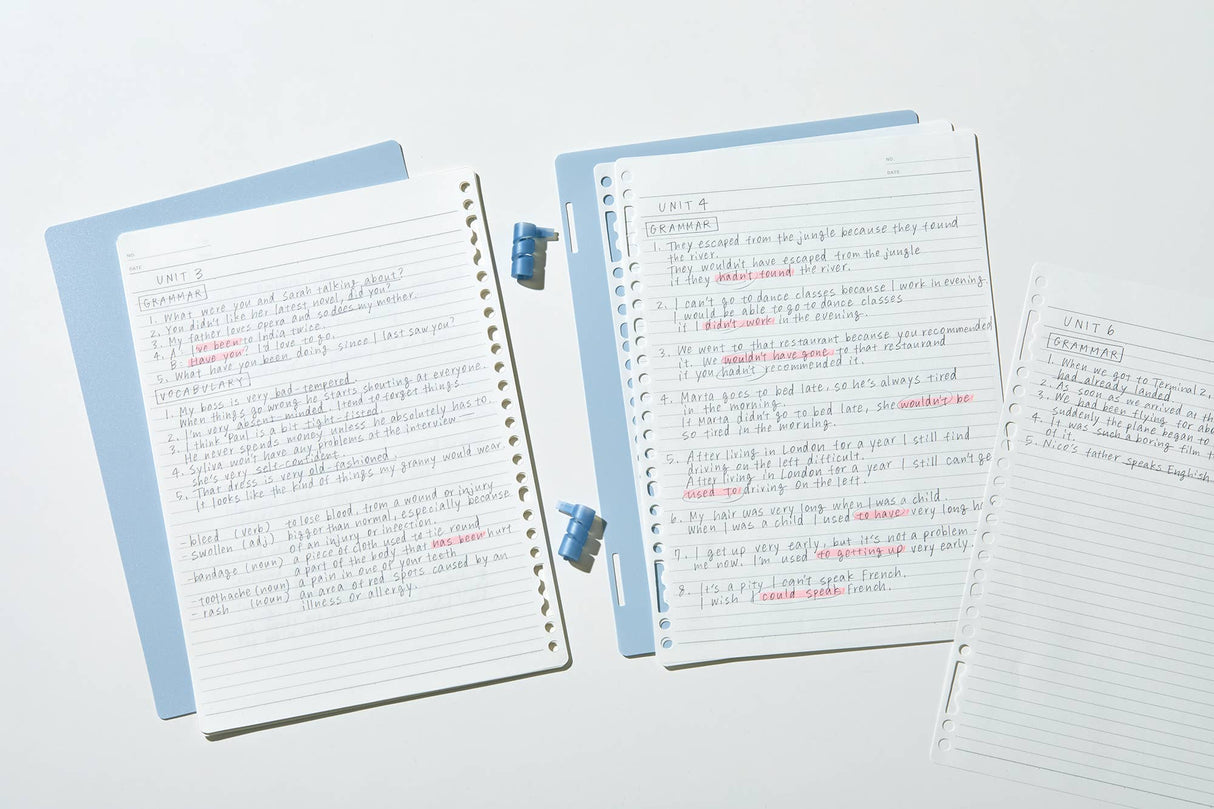 NO.
DATE.
UNIT 3
GRAMMAR
1. What were you and sarah talking about?
2. You didn't like her latest novel, did you?
3. My father loves opera and so does my mother.
4. A: I've been to India twice.
B: Have you? I'd love to go.
5. What have you been doing since I last saw you?
VOCABULARY
1. My boss is very bad-tempered.
When things go wrong he starts shouting at everyone.
2. I'm very absent-minded. I tend to forget things.
3. I think Paul is a bit tight-fisted.
He never spends money unless he absolutely has to.
4. Syliva won't have any problems at the interview —
she's very self-confident.
5. That dress is very old-fashioned.
It looks like the kind of things my granny would wear.
- bleed (verb) to lose blood, from a wound or injury
- swollen (adj) bigger than normal, especially because
of an injury or infection.
- bandage (noun) a piece of cloth used to tie round
a part of the body that has been hurt
- toothache (noun) a pain in one of your teeth
- rash (noun) an area of red spots caused by an
illness or allergy.
NO.
DATE.
UNIT 4
GRAMMAR
1. They escaped from the jungle because they found
the river.
They wouldn't have escaped from the jungle
if they hadn't found the river.
2. I can't go to dance classes because I work in evening.
I would be able to go to dance classes
if I didn't work in the evening.
3. We went to that restaurant because you recommended
it. We wouldn't have gone to that restaurand
if you hadn't recommended it.
4. Marta goes to bed late, so he's always tired
in the morning.
If Marta didn't go to bed late, she wouldn't be
so tired in the morning.
5. After living in London for a year I still find
driving on the left difficult.
After living in London for a year I still can't ge
used to driving on the left.
6. My hair was very long when I was a child.
When I was a child I used to have very long h
7. I get up very early, but it's not a problem
me now. I'm used to getting up very early.
8. It's a pity I can't speak French.
I wish I could speak French.
UNIT 6
GRAMMAR
1. When we got to Terminal 2,
had already landed.
2. As soon as we arrived at th
3. We had been flying for abo
suddenly the plane began to
4. It was such a boring film t
of it.
5. Nico's father speaks English